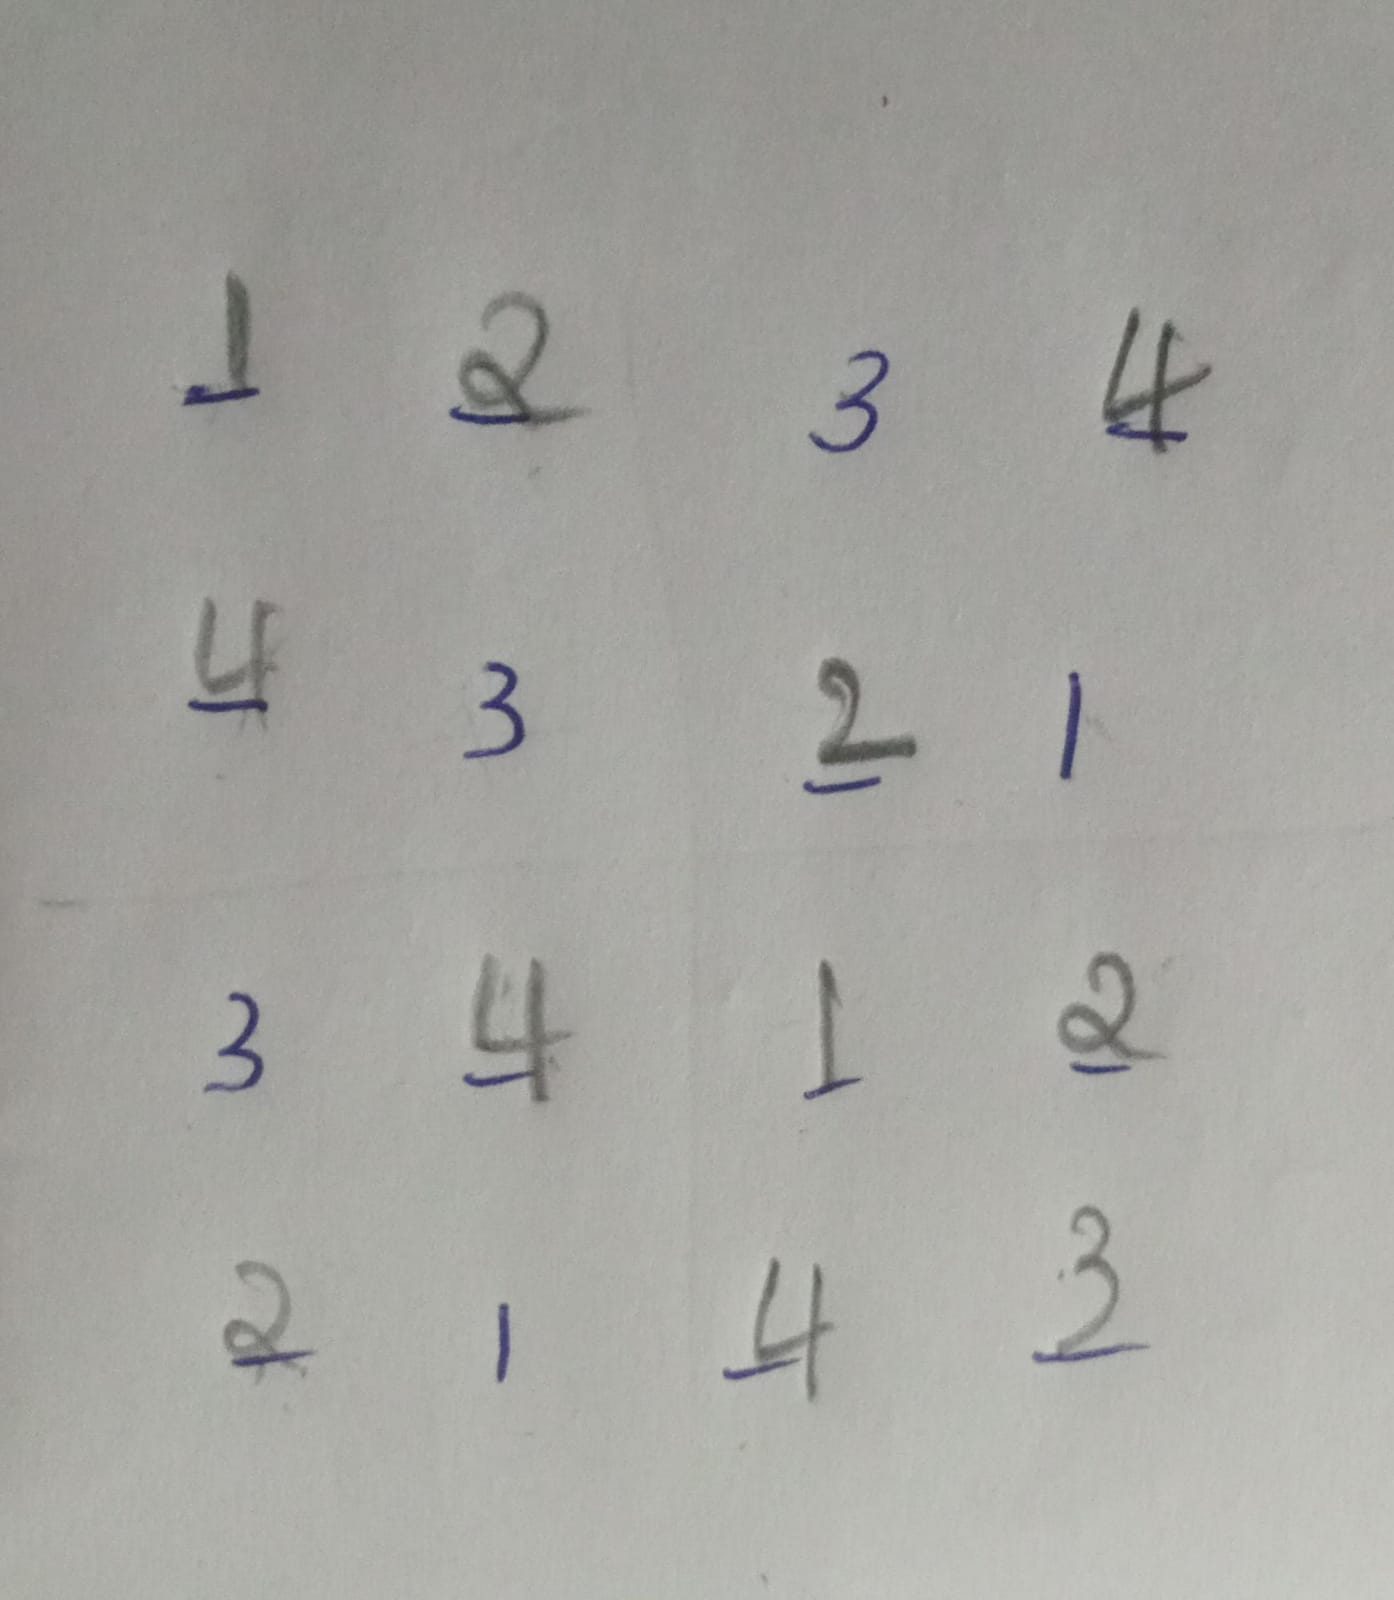 1 2 3 4
4 3 2 1
3 4 1 2
2 1 4 3